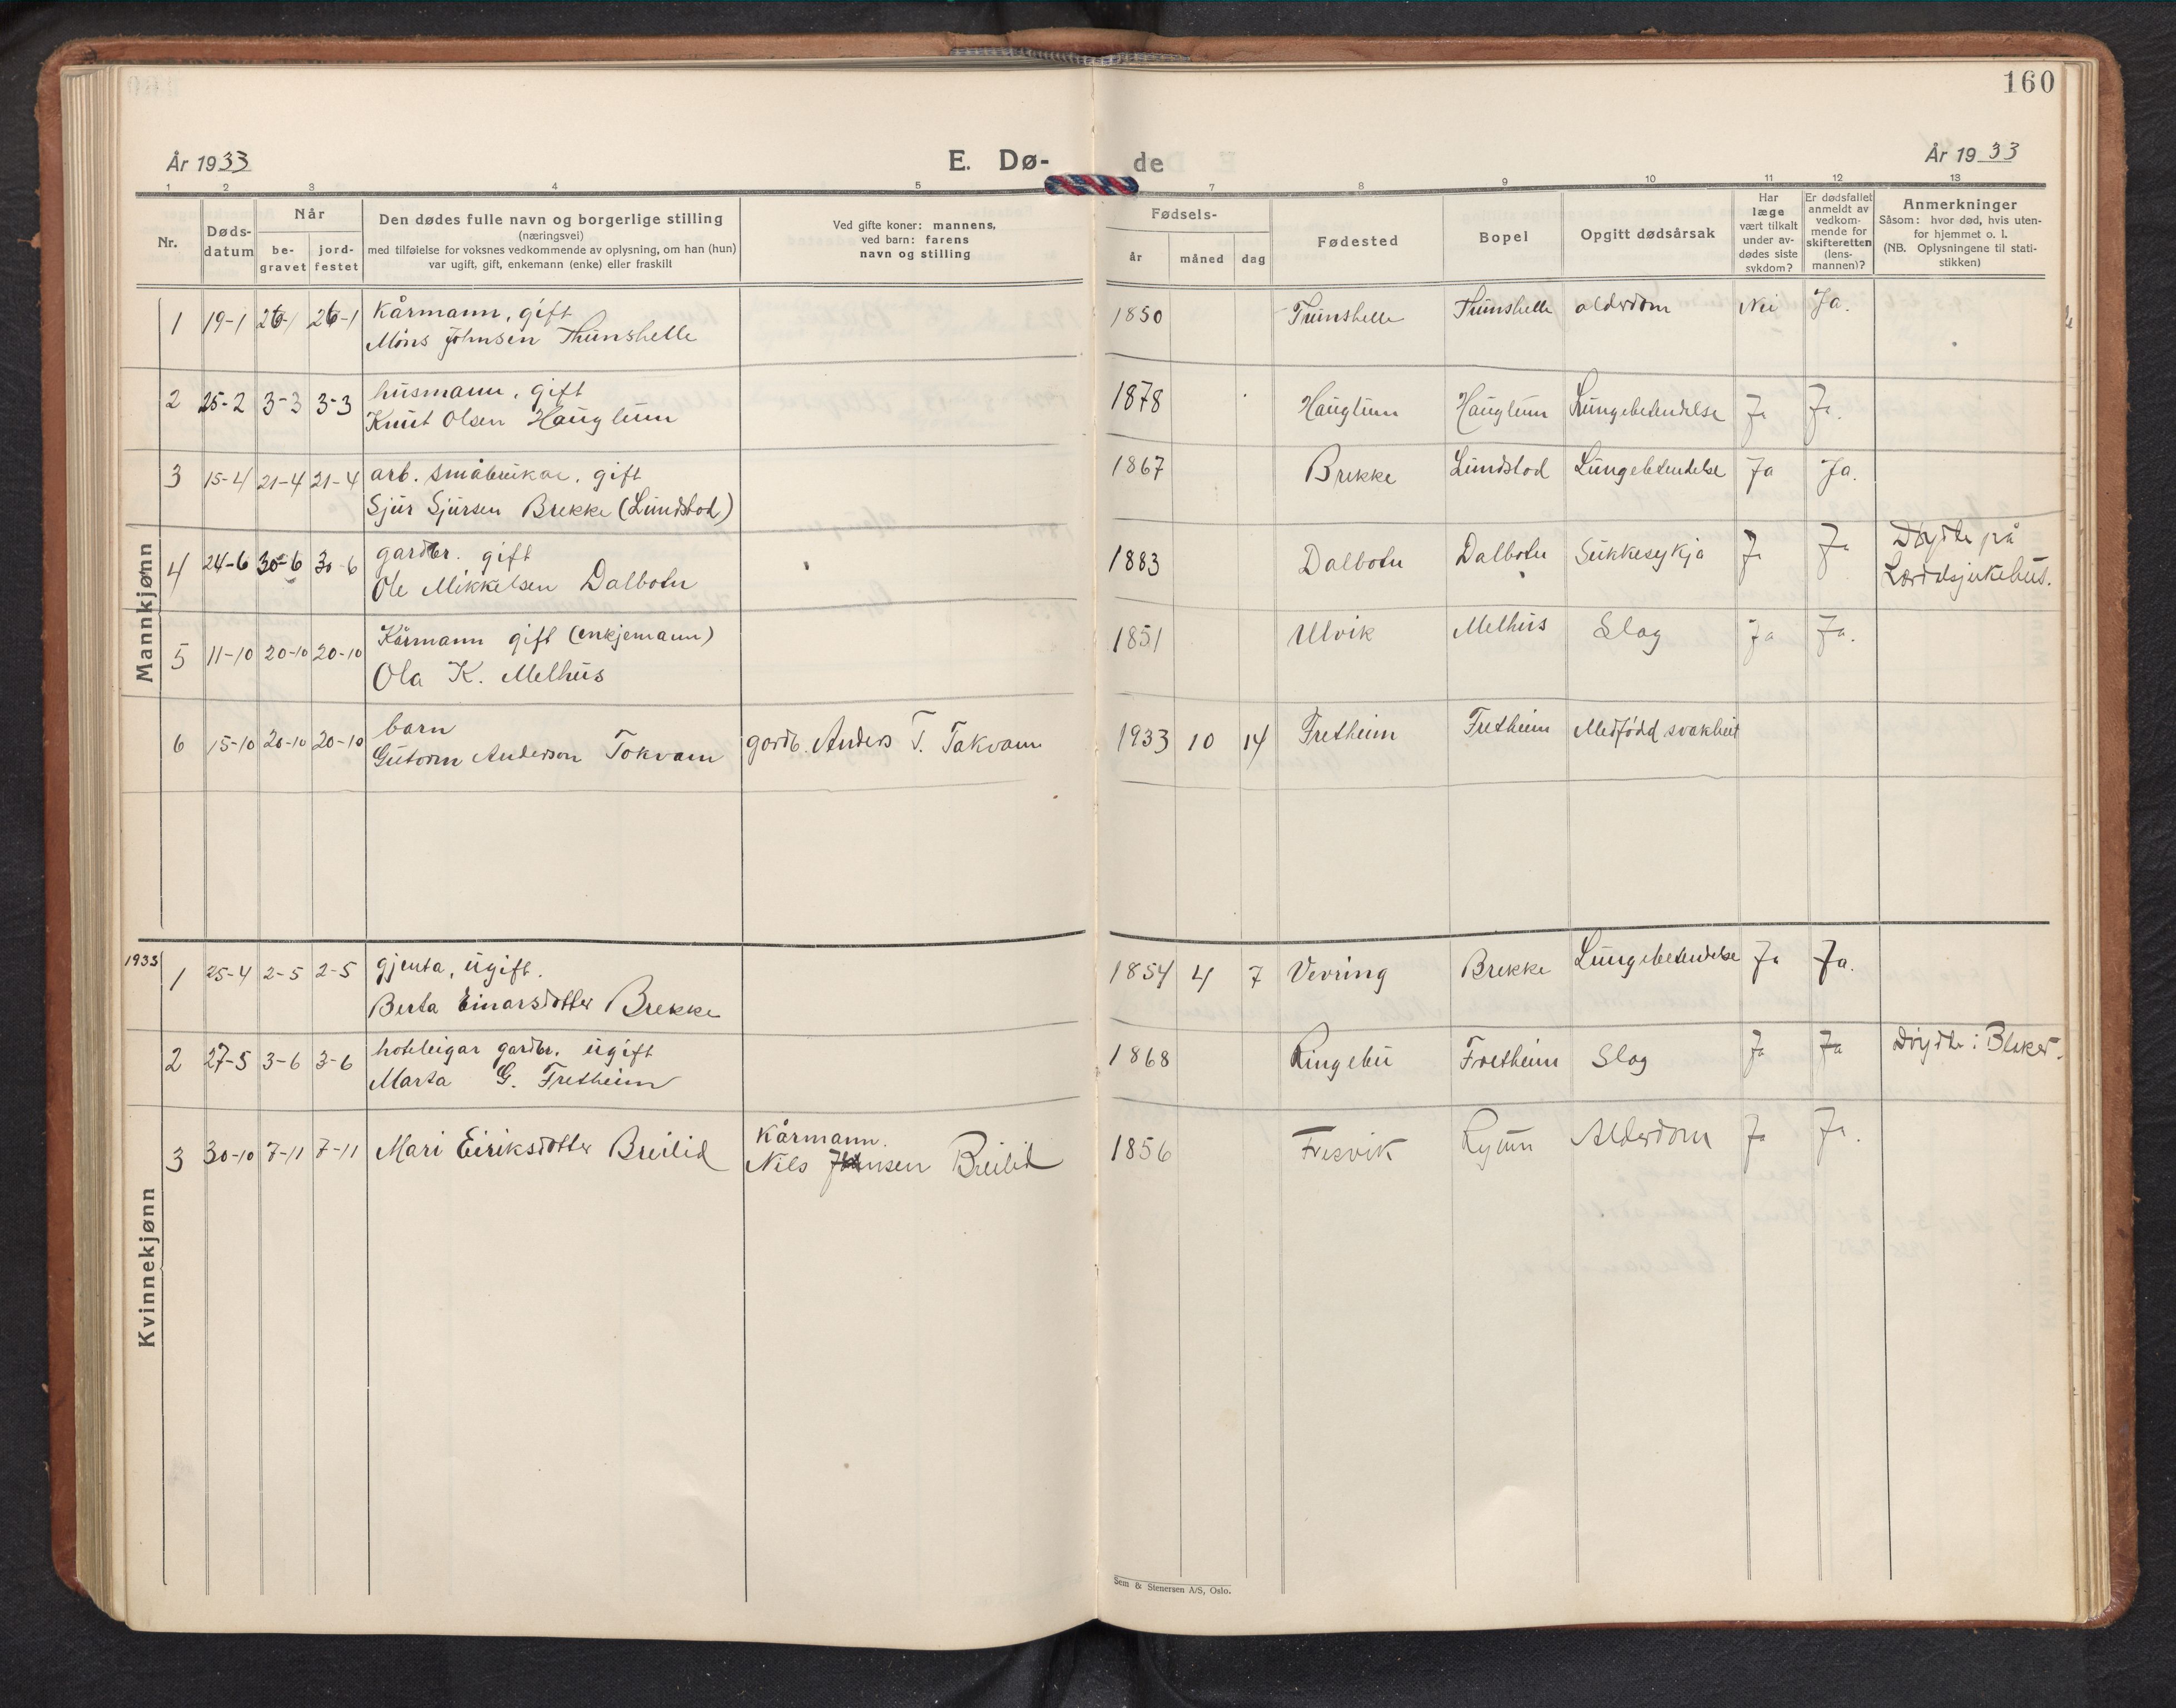 160
År 1933
E. Dø-
de
År 1933
1 2 3 4 5 7 8 9 10 11 12 13
Nr.
Døds-
datum
Når
be-
gravet
jord-
festet
Den dødes fulle navn og borgerlige stilling
(næringsvei)
med tilføielse for voksnes vedkommende av oplysning, om han (hun)
var ugift, gift, enkemann (enke) eller fraskilt
Ved gifte koner: mannens,
ved barn: farens
navn og stilling
Fødsels-
år
måned
dag
Fødested
Bopel
Opgitt dødsårsak
Har
læge
vært tilkalt
under av-
dødes siste
sykdom?
Er dødsfallet
anmeldt av
vedkom-
mende for
skifteretten
(lens-
mannen)?
Anmerkninger
Såsom: hvor død, hvis uten-
for hjemmet o. l.
(NB. Oplysningene til stati-
stikken)
Mannkjønn
1 19-1 26-1 26-1 Kårmann, gift
Mons Johnsen Thunshelle
1850 Tunshelle Thunshelle alderdom Nei Ja.
2 25-2 3-3 3-3 husmann, gift
Knut Olsen Hauglum
1878 Hauglum Hauglum Lungebetendelse Ja Ja.
3 15-4 21-4 21-4 arb. småbrukar, gift
Sjur Sjursen Brekke (Lundstod)
1867 Brekke Lundstod Lungebetendelse Ja Ja.
4 24-6 30-6 30-6 gardbr. gift
Ole Mikkelsen Dalbotn
1883 Dalbotn Dalbotn Sukkesykja Ja Ja Døydde på
Lærdalsjukehus.
5 11-10 20-10 20-10 Kårmann gift (enkjemann)
Ola K. Melhus
1851 Ulvik Melhus Slag Ja Ja.
6 15-10 20-10 20-10 barn
Gutorm Anderson Tokvam gardb. Anders T. Takvam
1933 10 14 Fretheim Fretheim Medfødd svakheit
Kvinnekjønn
1933
1 25-4 2-5 2-5 gjenta, ugift.
Berta Einarsdotter Brekke
1854 4 7 Vevring Brekke Lungebetendelse Ja Ja.
2 27-5 3-6 3-6 hotelleigar gardbr. ugift
Marta G. Fretheim
1868 Ringebu Fretheim Slag Ja Ja Døydde i Blaker.
3 30-10 7-11 7-11 Mari Eiriksdotter Breilid
Kårmann.
Nils Johnsen Breilid
1856 Fresvik Rytun Alderdom Ja Ja.
Sem & Stenersen A/S, Oslo.